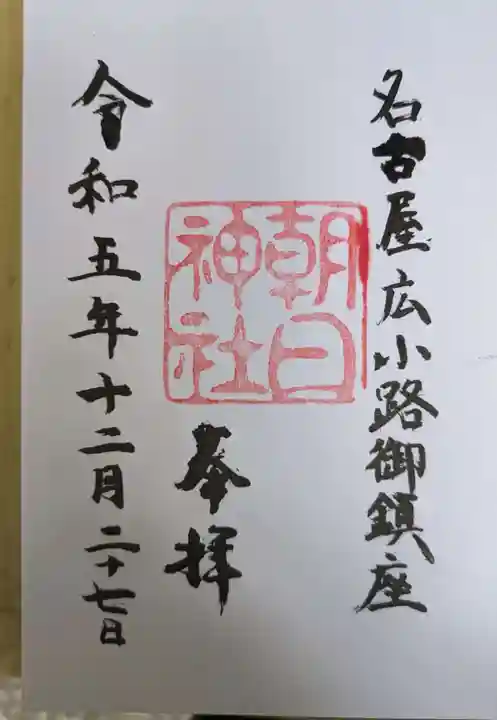 名古屋広小路御鎮座
朝日
神社
奉拝
令和五年十二月二十七日